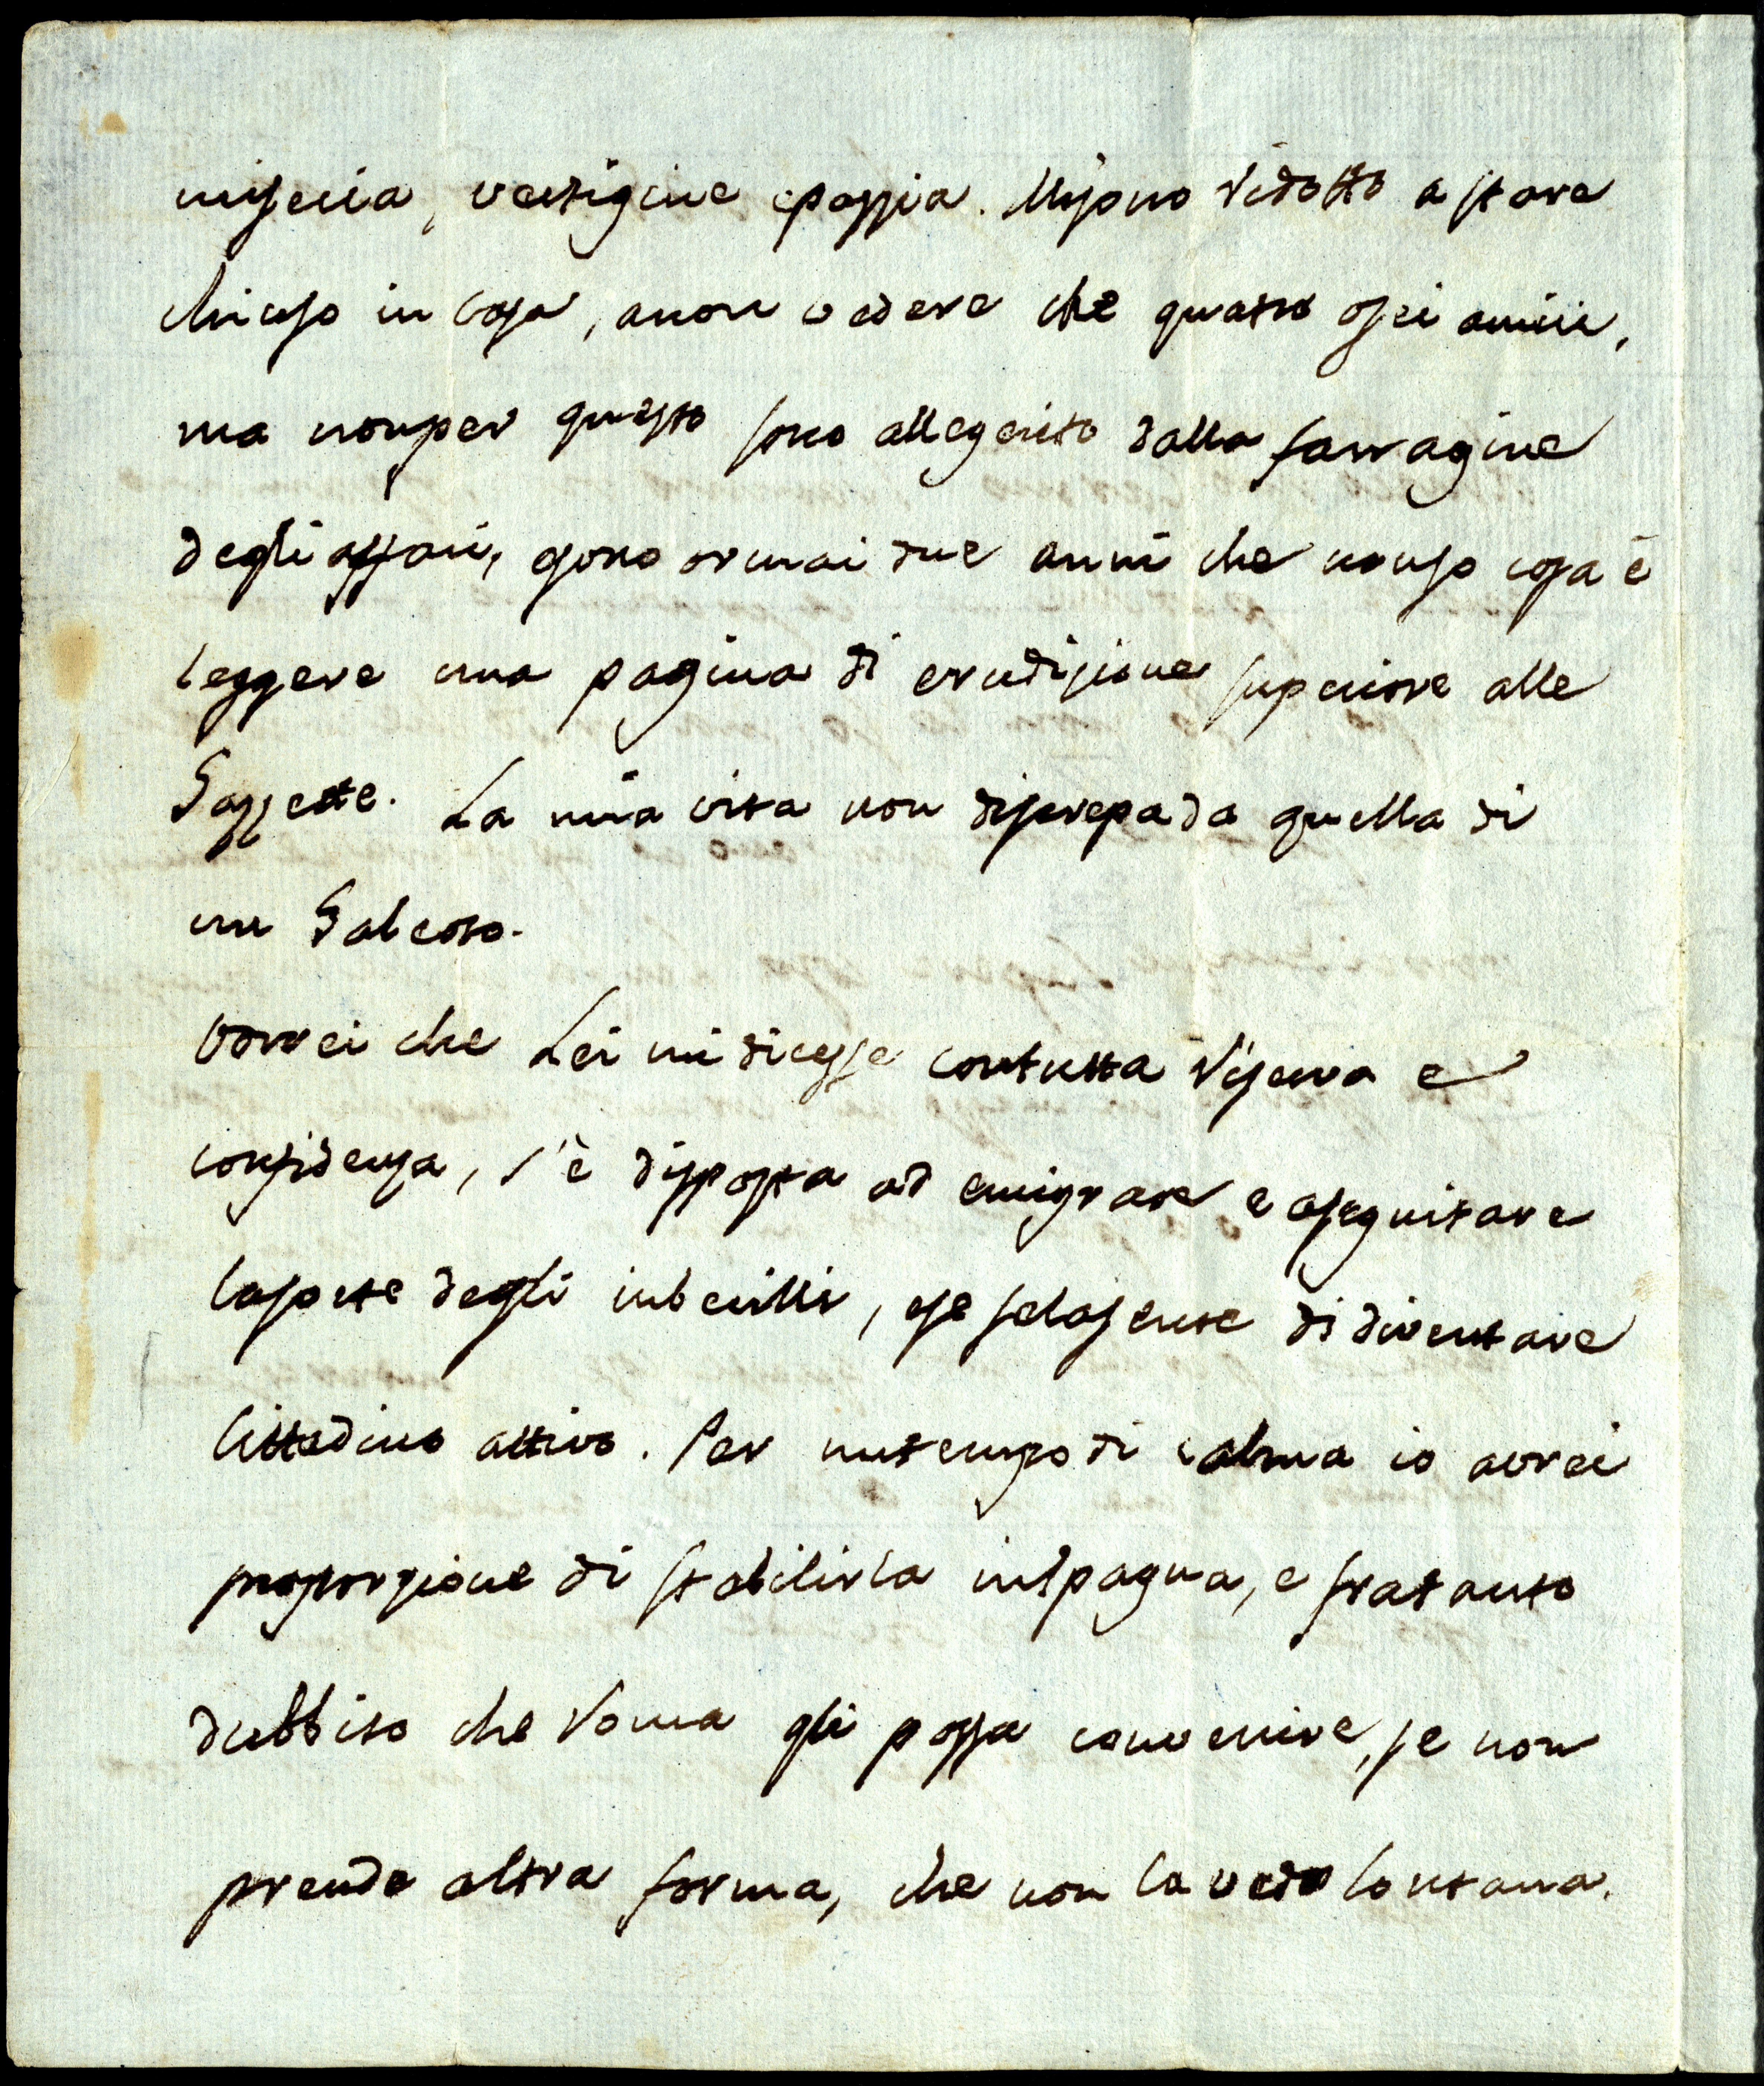 miseria, vertigine e pazzia. Mi sono ridotto a stare
chiuso in casa, a non vedere che quattro o sei amici,
ma non per questo sono allegerito dalla farragine
degli affari, e sono ormai due anni che non so cosa è
leggere una pagina di erudizione superiore alle
Gazzette. La mia vita non discrepa da quella di
un Galeoto.
Vorrei che Lei mi dicesse con tutta riserva e
confidenza, s'è disposta ad emigrare e a seguitare
la sorte degli imbecilli, o se se la sente di diventare
Cittadino attivo. Per un tempo di calma io avrei
proporzione di stabilirla in Spagna, e fratanto
dubbito che Roma gli possa convenire, se non
prende altra forma, che non la vedo lontana.